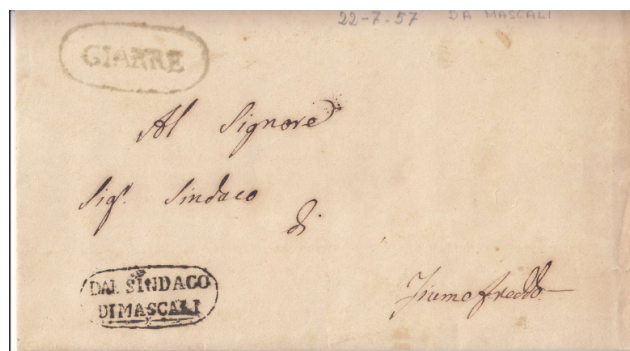 22-7-57 DA MASCALI
GIARRE
Al Signore
Sigr. Sindaco
di
Fiumefreddo
DAL SINDACO
DI MASCALI